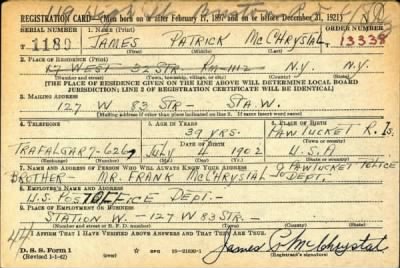 REGISTRATION CARD—(Men born on or after February 17, 1897 and on or before December 31, 1921)
SERIAL NUMBER 1. NAME (Print) ORDER NUMBER
T 1180 JAMES PATRICK McCHRYSTAL 13338
(First) (Middle) (Last)
2. PLACE OF RESIDENCE (Print)
17 WEST 32 STR RM-1112 N.Y. N.Y.
(Number and street) (Town, township, village, or city) (County) (State)
[THE PLACE OF RESIDENCE GIVEN ON THE LINE ABOVE WILL DETERMINE LOCAL BOARD
JURISDICTION; LINE 2 OF REGISTRATION CERTIFICATE WILL BE IDENTICAL]
3. MAILING ADDRESS
127 W 83 STR - STA. W.
[Mailing address if other than place indicated on line 2. If same insert word same]
4. TELEPHONE 5. AGE IN YEARS 6. PLACE OF BIRTH
39 YRS. PAWTUCKET R. Is.
DATE OF BIRTH (Town or county)
TRAFALGAR 7-6269 JULY 4 1902 U.S.A.
(Exchange) (Number) (Mo.) (Day) (Yr.) (State or country)
7. NAME AND ADDRESS OF PERSON WHO WILL ALWAYS KNOW YOUR ADDRESS PAWTUCKET POLICE
BROTHER - MR. FRANK McCHRYSTAL DEPT.
8. EMPLOYER'S NAME AND ADDRESS
U.S. POST OFFICE DEPT.-
9. PLACE OF EMPLOYMENT OR BUSINESS
STATION W. - 127 W 83 STR. -
(Number and street or R. F. D. number) (Town) (County) (State)
I AFFIRM THAT I HAVE VERIFIED ABOVE ANSWERS AND THAT THEY ARE TRUE.
D. S. S. Form 1
(Revised 1-1-42) (over) GPO 16—21630-1
James P McChrystal